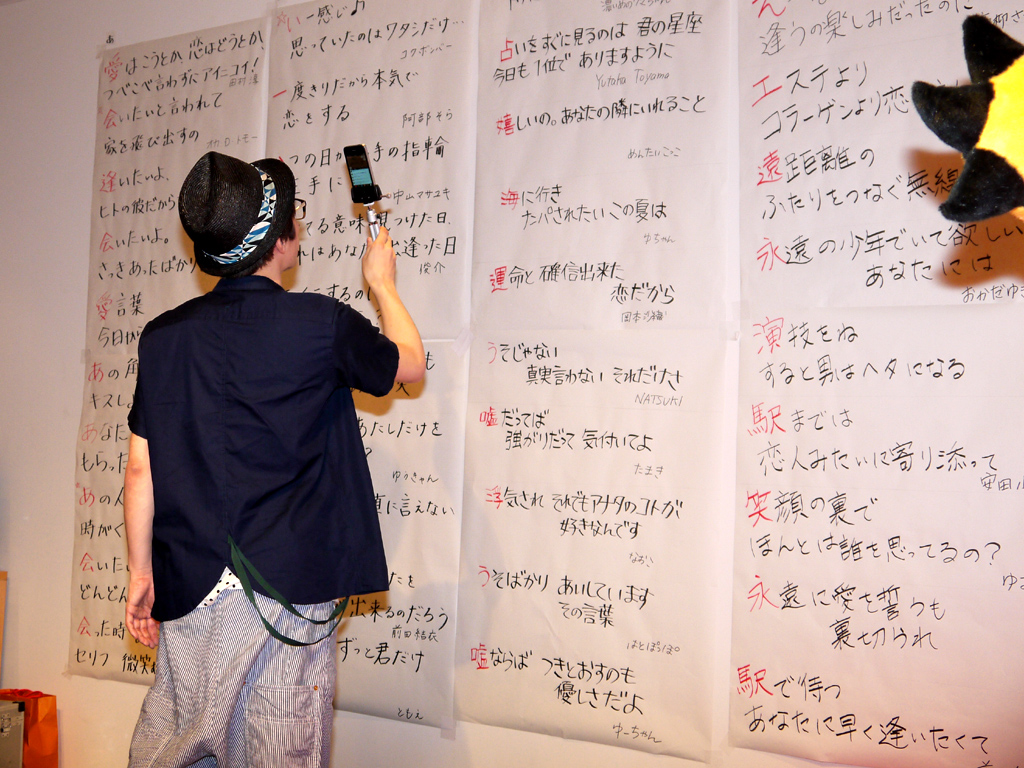 愛はこうとか、恋はどうとか、
つべこべ言わずにアイニコイ!
会いたいと言われて
家を飛び出すの
逢いたいよ、
ヒトの彼だから
会いたいよ。
さっきあったばかり
愛言葉
今日か
あの角
キスしよ
あなた
もらった
あの人
時がく
会いた
どんどん
会った時
セリフ 微笑
い一感じ♪
思っていたのはワタシだけ…
コクボンバー
一度きりだから本気で
恋をする
阿部そら
つの日か
手の指輪
手に
中山マサユキ
てる意味
つけた日、
れはあなた
出逢った日
俊介
にするの
も
あたしだけを
?
ゆうきゃん
直に言えない
たを
出来るのだろう
前田結衣
ずっと君だけ
ともえ
占いをすぐに見るのは 君の星座
今日も1位で ありますように
Yutaka Toyama
嬉しいの。あなたの隣にいれること
めんたいこっこ
海に行き
ナンパされたい この夏は
ゆちゃん
運命と 確信出来た
恋だから
うそじゃない
真実言わない それだけさ
NATSUKI
嘘だってば
強がりだって 気付いてよ
たまき
浮気され それでもアナタのコトが
好きなんです
なおこ
うそばかり あいしています
その言葉
はとぽっぽ
嘘ならば つきとおすのも
優しさだよ
ゆーちゃん
逢うの楽しみだったのに
エステより
コラーゲンより恋
遠距離の
ふたりをつなぐ無線
永遠の少年でいて欲しい
あなたには
おかぜゆき
演技をね
すると男はヘタになる
駅までは
恋人みたいに寄り添って
安田
笑顔の裏で
ほんとは誰を思ってるの?
ゆう
永遠に愛を誓うも
裏切られ
駅で待つ
あなたに早く逢いたくて